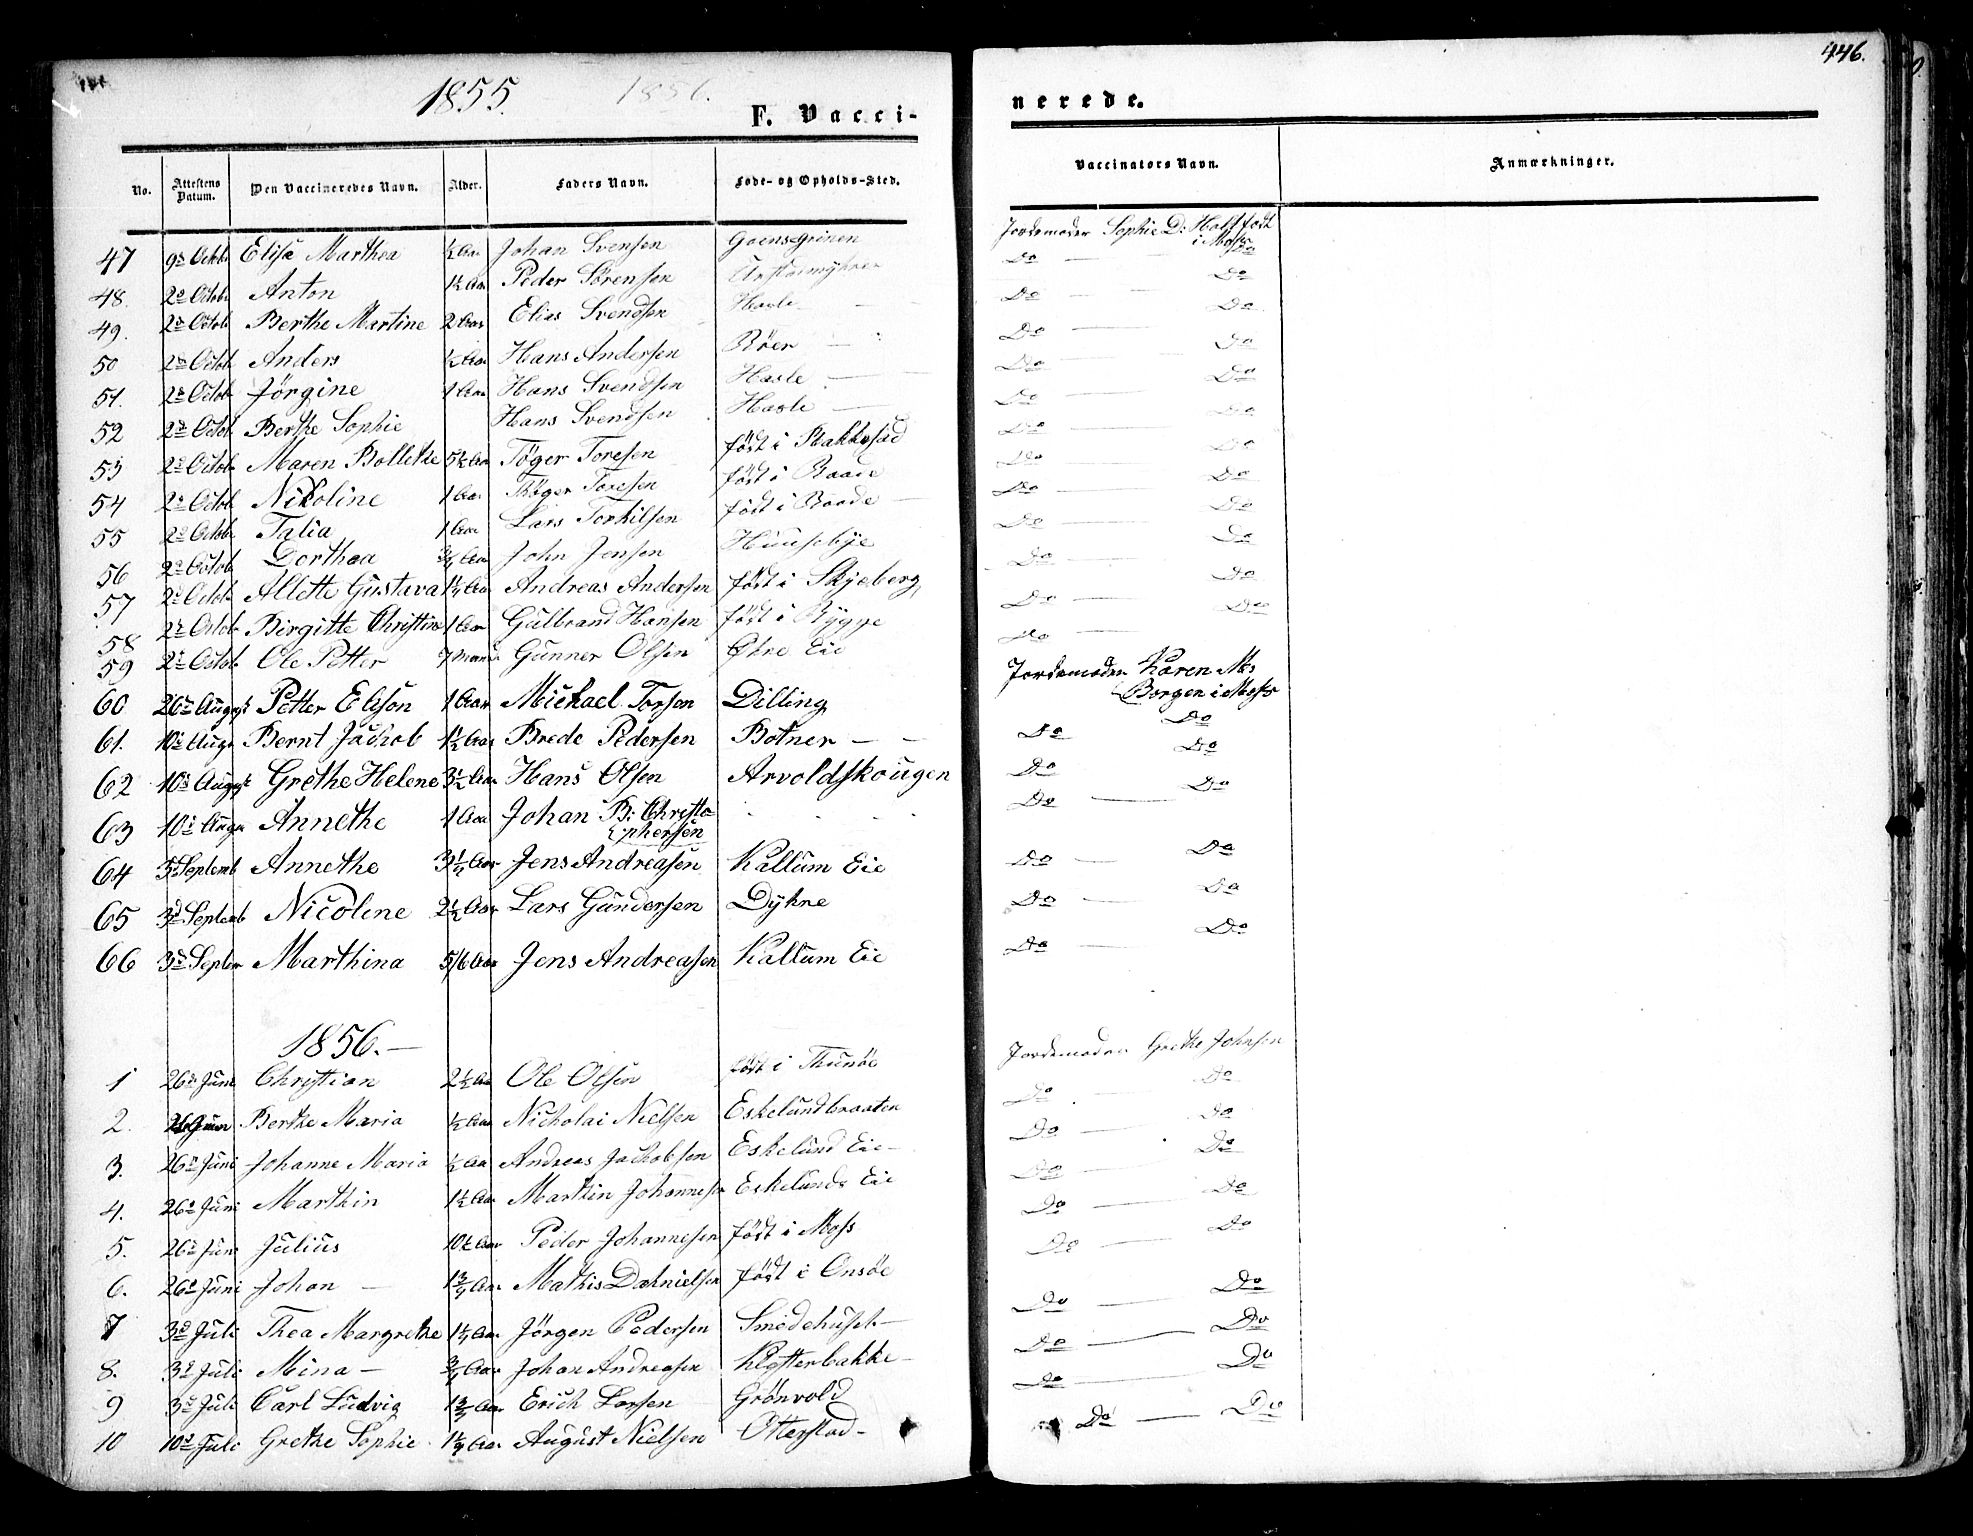 446.
1855. 1856.
F. Vacci-
nerede.
No. Attestens Datum. Den Vaccineredes Navn. Alder. Faders Navn. Føde- og Opholds-Sted. Vaccinators Navn. Anmærkninger.
47 9de Octbr Elise Marthea ½ Aar Johan Svensen Goensegrinen Jordemoder Sophie D: Holst født i Moss
48. 2de Octob Anton 1½ Aar Peder Sörensen Do — Do
49. 2de Octob Berthe Martine 2 Aar Elias Svendsen Hasle Do — Do
50 2de Octob Anders ½ Aar Hans Andersen Röer Do — Do
51. 2de Octob Jörgine 1 Aar Hans Svendsen Hasle Do — Do
52 2de Octob Berthe Sophie Hans Svendsen Hasle Do — Do
53 2de Octob Maren Bollethe 5½ Aar Töger Toresen født i Do — Do
54 2de Octob Nikoline 1 Aar Töger Toresen født i Raade Do — Do
55 2de Octob Talia 1 Aar Lars Torkilsen født i Raade Do — Do
56 2de Octob Dorthea ¾ Aar John Jensen Huusebye Do — Do
57 2de Octob Allette Gustava 1¼ Aar Andreas Andersen født i Skjeberg Do — Do
58 2de Octob Birgitte Christine 1 Aar Gulbrand Hansen født i Rygge Do — Do
59 2de Octob Ole Petter 7 Maan Gunner Olsen Øhre Eie Do — Do
60 26de August Petter Elison 1 Aar Michael Torsen Dilling Jordemoder Karen M: Borgen i Moss
61. 10de Augu Bernt Jachob 1½ Aar Brede Pedersen Botner — — Do Do
62 10de August Grethe Helene 3½ Aar Hans Olsen Arvoldskougen Do Do
63 10de Augu Annethe 1 Aar Johan B: Christo-
phersen Do — Do
64 3de Septemb Annethe 3½ Aar Jens Andreasen Kallum Eie Do — Do
65 3de Septemb Nicoline 2½ Aar Lars Gundersen Dyhne Do — Do
66 3de Septem Marthina 5/6 Aar Jens Andreasen Kallum Eie Do — Do
1856. —
1 26de Juni Christian 2½ Aar Ole Olsen født i Thunöe Jordemoder Grethe Johnsen
2. 26 Juni Berthe Maria ½ Aar Nicholai Nielsen Eskelundbraaten Do — Do
3. 26de Juni Johanne Maria ½ Aar Andreas Jachobsen Eskelund Eie — Do — Do
4. 26de Juni Marthin 1½ Aar Marthin Johannesen Eskelunds Eie Do — Do
5. 26de Juni Julius 10½ Aar Peder Johannesen født i Moss Do — Do
6. 26de Juni Johan — 1¾ Aar Mathis Dahnielsen født i Onsöe Do — Do
7 3de Juli Thea Margrethe 1¼ Aar Jörgen Pedersen Smedehuset — Do — Do
8. 3de Juli Mina — ¾ Aar Johan Andreasen Klötterbakke — Do — Do
9 3de Juli Carl Ludvig 1¾ Aar Erich Larsen Grönvold Do — Do
10 10de Juli Grethe Sophie 1¼ Aar August Nielsen Otterstad — Do — Do